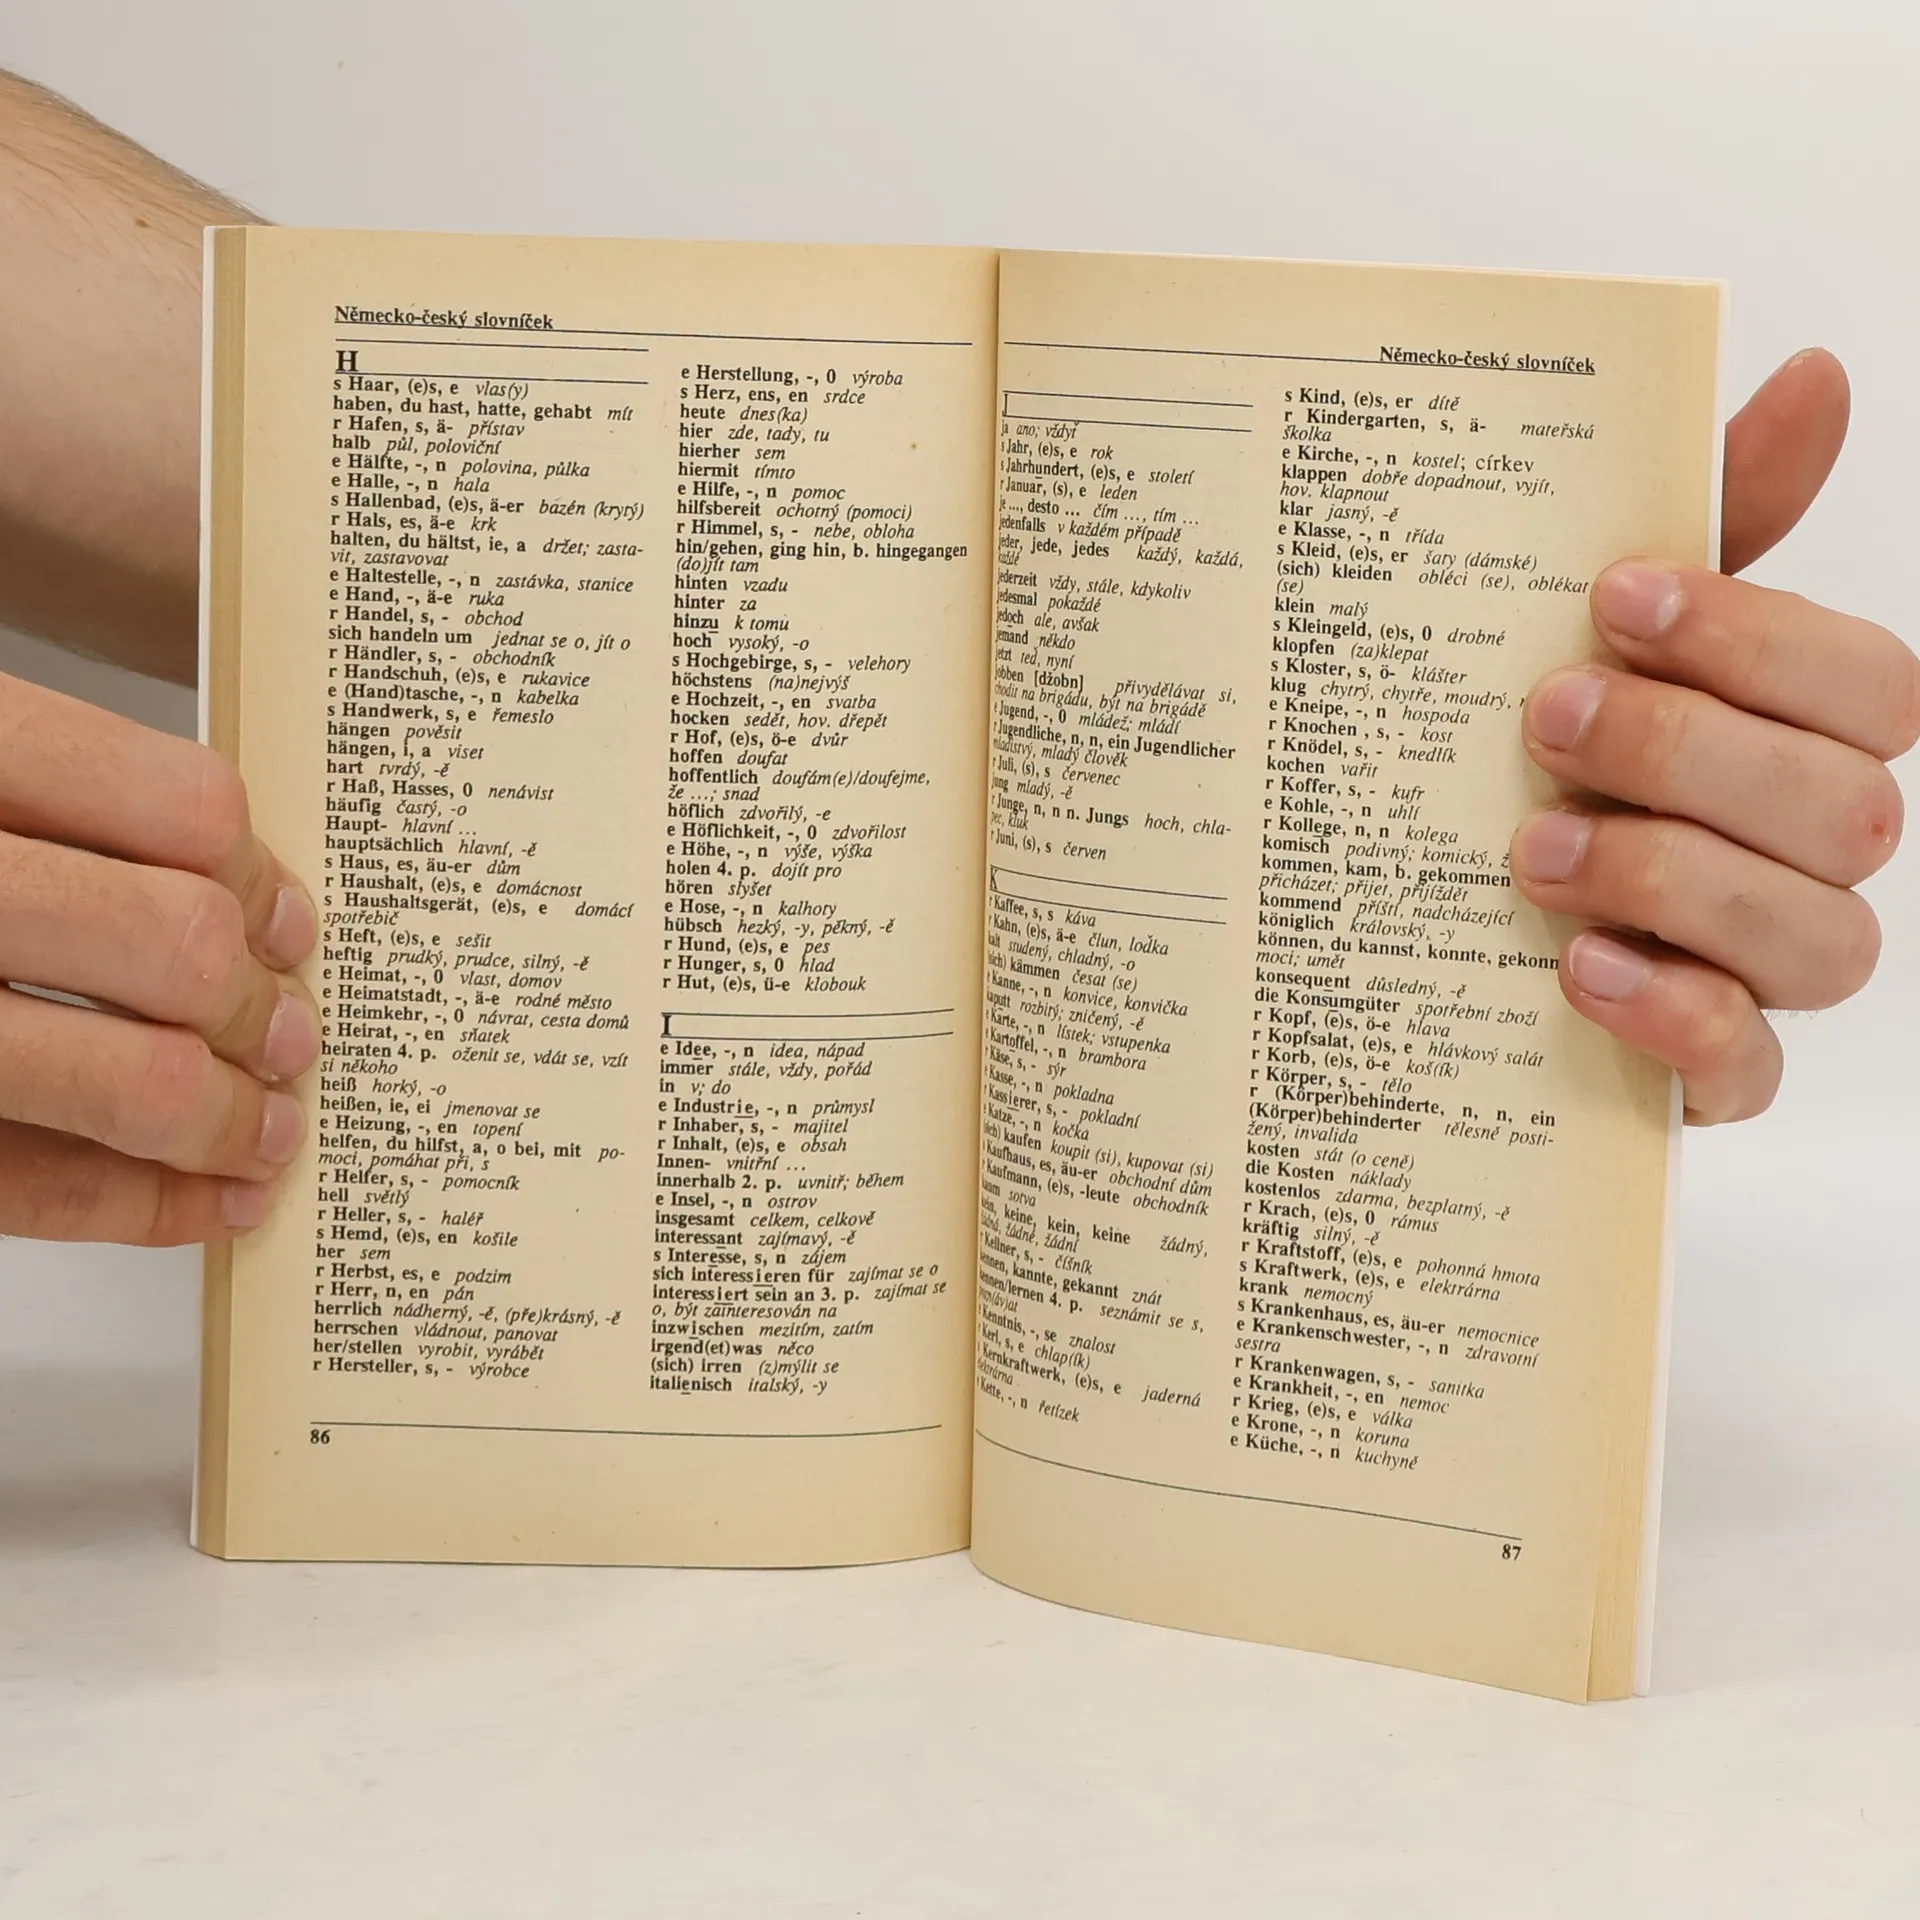 Německo-český slovníček
H
s Haar, (e)s, e vlas(y)
haben, du hast, hatte, gehabt mít
r Hafen, s, ä- přístav
halb půl, poloviční
e Hälfte, -, n polovina, půlka
e Halle, -, n hala
s Hallenbad, (e)s, ä-er bazén (krytý)
r Hals, es, ä-e krk
halten, du hältst, ie, a držet; zasta-
vit, zastavovat
e Haltestelle, -, n zastávka, stanice
e Hand, -, ä-e ruka
r Handel, s, - obchod
sich handeln um jednat se o, jít o
r Händler, s, - obchodník
r Handschuh, (e)s, e rukavice
e (Hand)tasche, -, n kabelka
s Handwerk, s, e řemeslo
hängen pověsit
hängen, i, a viset
hart tvrdý, -ě
r Haß, Hasses, 0 nenávist
häufig častý, -o
Haupt- hlavní ...
hauptsächlich hlavní, -ě
s Haus, es, äu-er dům
r Haushalt, (e)s, e domácnost
s Haushaltsgerät, (e)s, e domácí
spotřebič
s Heft, (e)s, e sešit
heftig prudký, prudce, silný, -ě
e Heimat, -, 0 vlast, domov
e Heimatstadt, -, ä-e rodné město
e Heimkehr, -, 0 návrat, cesta domů
e Heirat, -, en sňatek
heiraten 4. p. oženit se, vdát se, vzít
si někoho
heiß horký, -o
heißen, ie, ei jmenovat se
e Heizung, -, en topení
helfen, du hilfst, a, o bei, mit po-
moci, pomáhat při, s
r Helfer, s, - pomocník
hell světlý
r Heller, s, - haléř
s Hemd, (e)s, en košile
her sem
r Herbst, es, e podzim
r Herr, n, en pán
herrlich nádherný, -ě, (pře)krásný, -ě
herrschen vládnout, panovat
her/stellen vyrobit, vyrábět
r Hersteller, s, - výrobce
e Herstellung, -, 0 výroba
s Herz, ens, en srdce
heute dnes(ka)
hier zde, tady, tu
hierher sem
hiermit tímto
e Hilfe, -, n pomoc
hilfsbereit ochotný (pomoci)
r Himmel, s, - nebe, obloha
hin/gehen, ging hin, b. hingegangen
(do)jít tam
hinten vzadu
hinter za
hinzu k tomu
hoch vysoký, -o
s Hochgebirge, s, - velehory
höchstens (na)nejvýš
e Hochzeit, -, en svatba
hocken sedět, hov. dřepět
r Hof, (e)s, ö-e dvůr
hoffen doufat
hoffentlich doufám(e)/doufejme,
že ...; snad
höflich zdvořilý, -e
e Höflichkeit, -, 0 zdvořilost
e Höhe, -, n výše, výška
holen 4. p. dojít pro
hören slyšet
e Hose, -, n kalhoty
hübsch hezký, -y, pěkný, -ě
r Hund, (e)s, e pes
r Hunger, s, 0 hlad
r Hut, (e)s, ü-e klobouk
I
e Idee, -, n idea, nápad
immer stále, vždy, pořád
in v; do
e Industrie, -, n průmysl
r Inhaber, s, - majitel
r Inhalt, (e)s, e obsah
Innen- vnitřní ...
innerhalb 2. p. uvnitř; během
e Insel, -, n ostrov
insgesamt celkem, celkově
interessant zajímavý, -ě
s Interesse, s, n zájem
sich interessieren für zajímat se o
interessiert sein an 3. p. zajímat se
o, být zainteresován na
inzwischen mezitím, zatím
irgend(et)was něco
(sich) irren (z)mýlit se
italienisch italský, -y
86
Německo-český slovníček
J
ja ano; vždyť
s Jahr, (e)s, e rok
s Jahrhundert, (e)s, e století
r Januar, (s), e leden
je ..., desto ... čím ..., tím ...
jedenfalls v každém případě
jeder, jede, jedes každý, každá,
každé
jederzeit vždy, stále, kdykoliv
jedesmal pokaždé
jedoch ale, avšak
jemand někdo
jetzt teď, nyní
jobben [džobn] přivydělávat si,
chodit na brigádu, být na brigádě
e Jugend, -, 0 mládež; mládí
r Jugendliche, n, n, ein Jugendlicher
mladistvý, mladý člověk
r Juli, (s), s červenec
jung mladý, -ě
r Junge, n, n n. Jungs hoch, chla-
pec, kluk
r Juni, (s), s červen
K
r Kaffee, s, s káva
r Kahn, (e)s, ä-e člun, loďka
kalt studený, chladný, -o
(sich) kämmen česat (se)
e Kanne, -, n konvice, konvička
kaputt rozbitý; zničený, -ě
e Karte, -, n lístek; vstupenka
e Kartoffel, -, n brambora
r Käse, s, - sýr
e Kasse, -, n pokladna
r Kassierer, s, - pokladní
e Katze, -, n kočka
(sich) kaufen koupit (si), kupovat (si)
s Kaufhaus, es, äu-er obchodní dům
r Kaufmann, (e)s, -leute obchodník
kaum sotva
kein, keine, kein, keine žádný,
žádná, žádné, žádní
r Kellner, s, - číšník
kennen, kannte, gekannt znát
kennen/lernen 4. p. seznámit se s,
pozn(áv)at
e Kenntnis, -, se znalost
r Kerl, s, e chlap(ík)
s Kernkraftwerk, (e)s, e jaderná
elektrárna
e Kette, -, n řetízek
s Kind, (e)s, er dítě
r Kindergarten, s, ä- mateřská
školka
e Kirche, -, n kostel; církev
klappen dobře dopadnout, vyjít,
hov. klapnout
klar jasný, -ě
e Klasse, -, n třída
s Kleid, (e)s, er šaty (dámské)
(sich) kleiden obléci (se), oblékat
(se)
klein malý
s Kleingeld, (e)s, 0 drobné
klopfen (za)klepat
s Kloster, s, ö- klášter
klug chytrý, chytře, moudrý,
e Kneipe, -, n hospoda
r Knochen , s, - kost
r Knödel, s, - knedlík
kochen vařit
r Koffer, s, - kufr
e Kohle, -, n uhlí
r Kollege, n, n kolega
komisch podivný; komický,
kommen, kam, b. gekommen
přicházet; přijet, přijíždět
kommend příští, nadcházející
königlich královský, -y
können, du kannst, konnte, gekonn
moci; umět
konsequent důsledný, -ě
die Konsumgüter spotřební zboží
r Kopf, (e)s, ö-e hlava
r Kopfsalat, (e)s, e hlávkový salát
r Korb, (e)s, ö-e koš(ík)
r Körper, s, - tělo
r (Körper)behinderte, n, n, ein
(Körper)behinderter tělesně posti-
žený, invalida
kosten stát (o ceně)
die Kosten náklady
kostenlos zdarma, bezplatný, -ě
r Krach, (e)s, 0 rámus
kräftig silný, -ě
r Kraftstoff, (e)s, e pohonná hmota
s Kraftwerk, (e)s, e elektrárna
krank nemocný
s Krankenhaus, es, äu-er nemocnice
e Krankenschwester, -, n zdravotní
sestra
r Krankenwagen, s, - sanitka
e Krankheit, -, en nemoc
r Krieg, (e)s, e válka
e Krone, -, n koruna
e Küche, -, n kuchyně
87